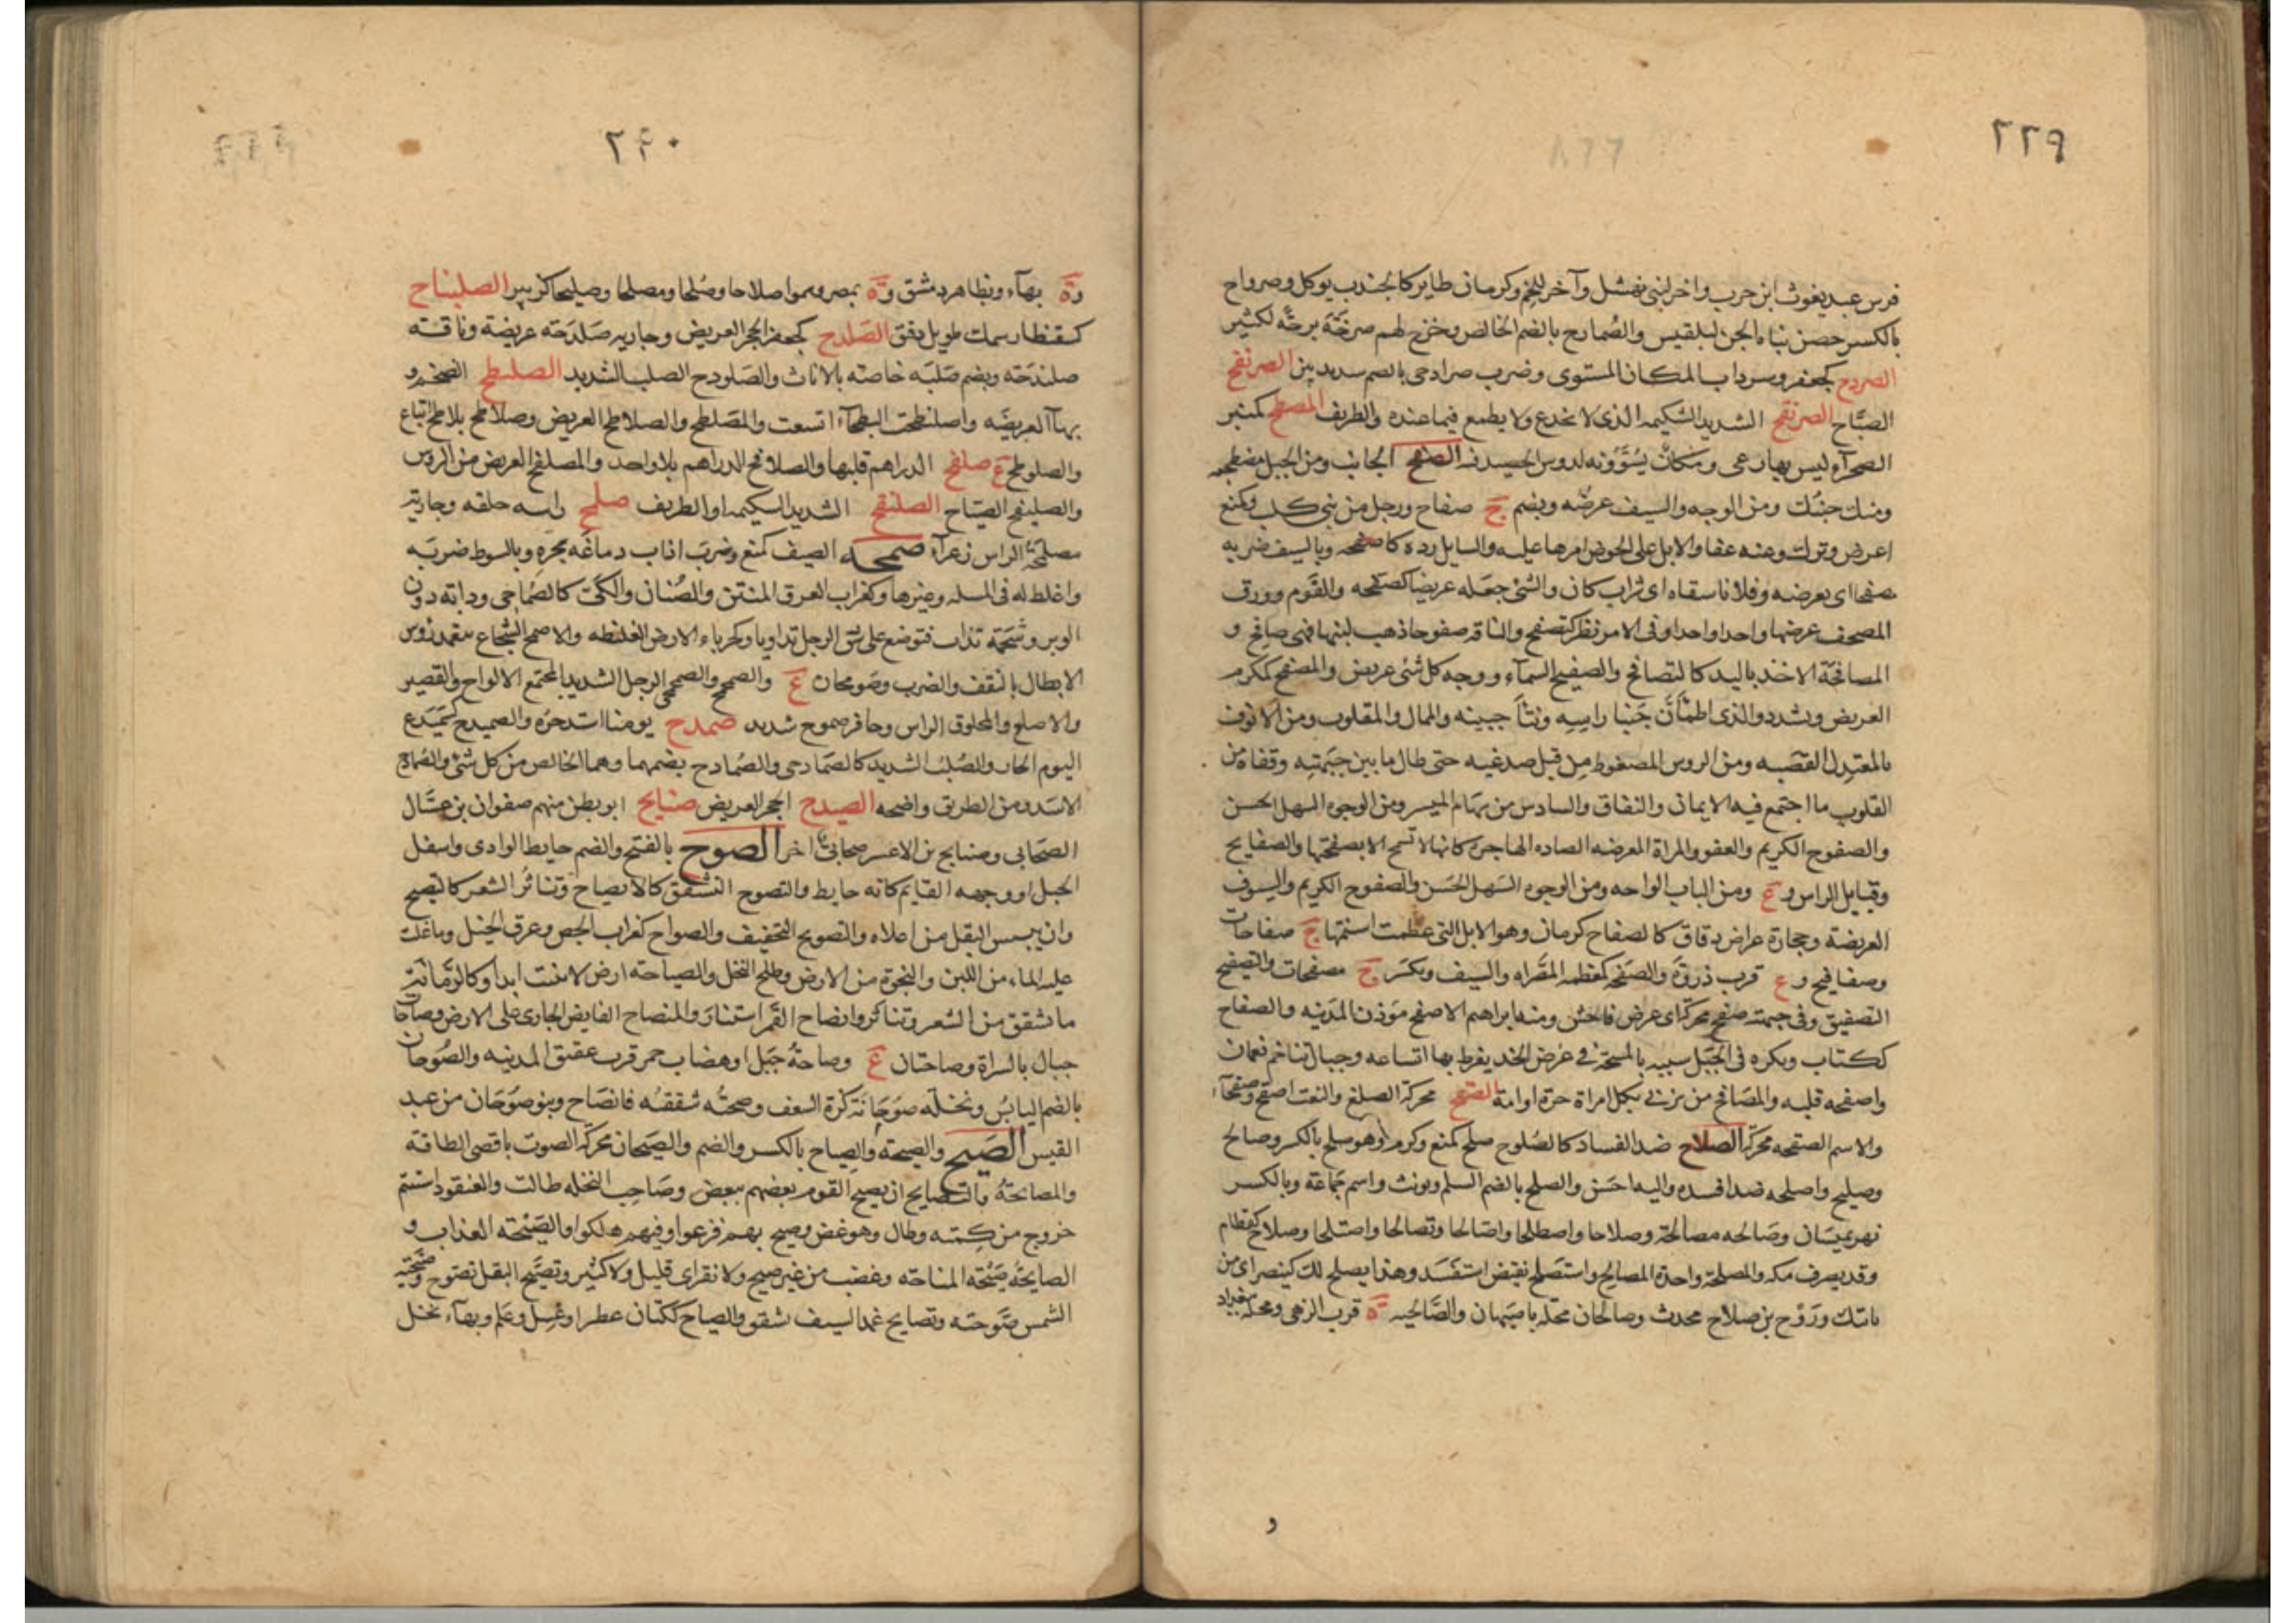 ٢٢٩
فرس عبد يغوث ابن حرب واخر لبني نهشل وآخر للخم وكرمان طاير كالجندب يوكل وصرواح
بالكسر حصن بناه الجن لبلقيس والصُمادح بالضم الخالص وخرج لهم صرحَة برحَة لكثير
الصردح كجعفر وسرداب المكان المستوى وضرب صرادحى بالضم شديد بين الصرنفح
الصيَّاح الصرنقح الشديد الشكيمه الذى لا يخدع ولا يطمع فيما عنده والظريف المصطح كمنبر
الصحرآء ليس بها رعى ومكان يُسَوُّونه لدوس الحصيد فيه الصفح الجانب ومن الجبل مضطجعه
ومنك جنبك ومن الوجه والسيف عرضُه ويضم ج صفاح ورجل من بني كلب وكمنع
اعرض وترك وعنه عفا والابل على الحوض امرها عليه والسايل رده كاصفحه وبالسيف ضربه
مصفحا اى بعرضه وفلانا سقاه اى شراب كان والشئ جعله عريضا كصفحه والقوم وورق
المصحف عرضها واحدا واحدا وفى الامر نظر كتصفح والناقه صفوحا ذهب لبنها فهى صافح و
المصافحة الاخذ باليد كالتصافح والصفيح السمآء ووجه كل شئ عريض والمصفح كمكرم
العريض ويشدد والذى اطمأنَّ جنبا راسِهِ ونتأ جبينه والممال والمقلوب ومن الانوف
المعتدِل القصبه ومن الروس المضغوط مِن قبل صدغيه حتى طال ما بين جبهتِه وقفاه من
القلوب ما اجتمع فيه الايمان والنفاق والسادس من سهام الميسر ومن الوجوه السهل الحسن
والصفوح الكريم والعفو والمراة المعرضه الصاده الهاجره كانها لا تسمح الا بصفحتها والصفايح
وقبايل الراس وع ومن الباب الواحه ومن الوجوه السَهل الحَسَن والصفوح الكريم والسيوف
العريضة وحجارة عراض دقاق كالصفاح كرمان وهو الابل التى عظمت اسنمتها ج صفاحات
وصفافيح وع قرب ذروَة والصَفحه كمعظمه المصَّراه والسيف ويكسَر ج مصفحات والتصفيح
التصفيق وفى جبهته صفح محركة اى عرض فاحش ومنه ابراهيم الاصفح موَذن المدينه والصفاح
ككتاب ويكره فى الخيل شبيه بالمسحة فى عرض الخد يفرط بها اتساعه وجبال تتاخم نعمان
واصفحه قلبه والمصَافح من يزنى بكل امراة حرة او امة الصقح محركة الصلع والنعت اصقح وصقحآء
والاسم الصقحه محركة الصلاح ضد الفساد كالصُلوح صلح كمنع وكرم وهو صلح بالكسر وصالح
وصليح واصلحه ضد افسده واليه احسَن والصلح بالضم السلم ويونث واسم جَماعَة وبالكسر
نهر بميسَان وصَالحه مصالحة وصلاحا واصطلحا واصّالحا وتصالحا واصتلحا وصلاح كقطام
وقد يصرف مكه والمصلحة واحدة المصالح واستَصلح نقيض استفسَد وهذا يصلح لك كينصر اى من
بابتك ورَوْح بن صلاح محدث وصالحان محله باصبهان والصَّالحيه ة قرب الرهى ومحله ببغداد
و
٢٤٠
وة بهآء وبظاهر دمشق وة بمصر وسموا صلاحا وصُلحا ومصلحا وصليحا كزبير الصلنباح
كسقنطار سمك طويل دقيق الصَلدح كجعفر الحجر العريض وجاريه صَلدَحَه عريضة وناقه
صلندَحَه ويضم صَلبَه خاصّه بالاناث والصَلودح الصلب الشديد الصلطح الضخم و
بهآ العريضَه واصلنطحت البطحآء اتسعت والمصَلطح والصلاطح العريض وصلاطح بلاطح اتباع
والصلوطح ع صلفح الدراهم قلبها والصلافح الدراهم بلا واحد والمصلفح العريض من الروس
والصلينفح الصيَّاح الصلنقح الشديد الشكيمه او الظريف صلمح راسه حلقه وجارية
مصلمَحَة الراس زعرآء صمحه الصيف كمنع وضرب اذاب دماغَه بحرِهِ وبالسوط ضربَه
واغلظ له فى المسله وغيرها وكغراب العرق المنتن والصُنان والكَىّ كالصُماحى ودابّه دون
الوبر وشحمَة تذاب فتوضع على شق الرجل تداويا وكحرباء الارض الغليظه والاصمح الشجاع يتعمد روس
الابطال بالنقف والضرب وصَومحان ع والصمحمح والصمحمحى الرجل الشديد المجتمع الالواح والقصير
والاصلع والمحلوق الراس وحافر صموح شديد صمدح يومنا اشتد حره والصميدح كسَمَيدع
اليوم الحار والصُلبُ الشديد كالصَمادحى والصُمادح بضمهما وهما الخالص من كل شئ والصُمادح
الاسَد ومن الطريق واضحه الصيدح الحجر العريض صنابح ابو بطن منهم صفوان بن عسَّال
الصَحابى وصنابح بن الاعسر صحابىٌّ اخر الصوح بالفتح والضم حايط الوادى واسفل
الجبل او وجهه القايم كانه حايط والتصوح التشقق كالانصياح وتناثُر الشعر كالتصيح
وان ييبس البقل من اعلاه والتصويح التجفيف والصواح كغراب الجص وعرق الخيل وما غلب
عليه الماء من اللبن والنجوة من الارض وطلع النخل والصياحه ارض لا تنبت ابدا وكالرمَّانة
ما تشقق من الشعر وتناكر وانصاح القمَر استنارَ والمنصاح الفايض الجارى على الارض وصاحات
جبال بالسراة وصاحتان ع وصاحةُ جبَل او هضاب حمر قرب عقيق المدينه والصُوحان
بالضم اليابسُ ونخلَه صوحَانَة كزة السعف وصحتُه شققتُه فانصَاح وبنو صُوحَان من عبد
القيس الصَيح والصيحة والصِياح بالكسر والضم والصيَحان محركة الصوت باقصى الطاقه
والمصايحةُ والتصايح ان يصيح القوم بعضهم ببعض وصَاحتِ النخله طالت والعنقود استتم
خروج من كِمَّته وطال وهو غض وصيح بهم فزعوا وفيهم هلكوا والصَيحَه العذاب و
الصايحَةُ صَيحَة المناحه وغضب من غير صيح ولا نفر اى قليل ولا كثير وتصيَّح البقل تصوح وصيّحته
الشمس صَوحته وتصايح غمد السيف تشقق والصياح ككتان عطر او غسل وعَلم وبهآء نخل